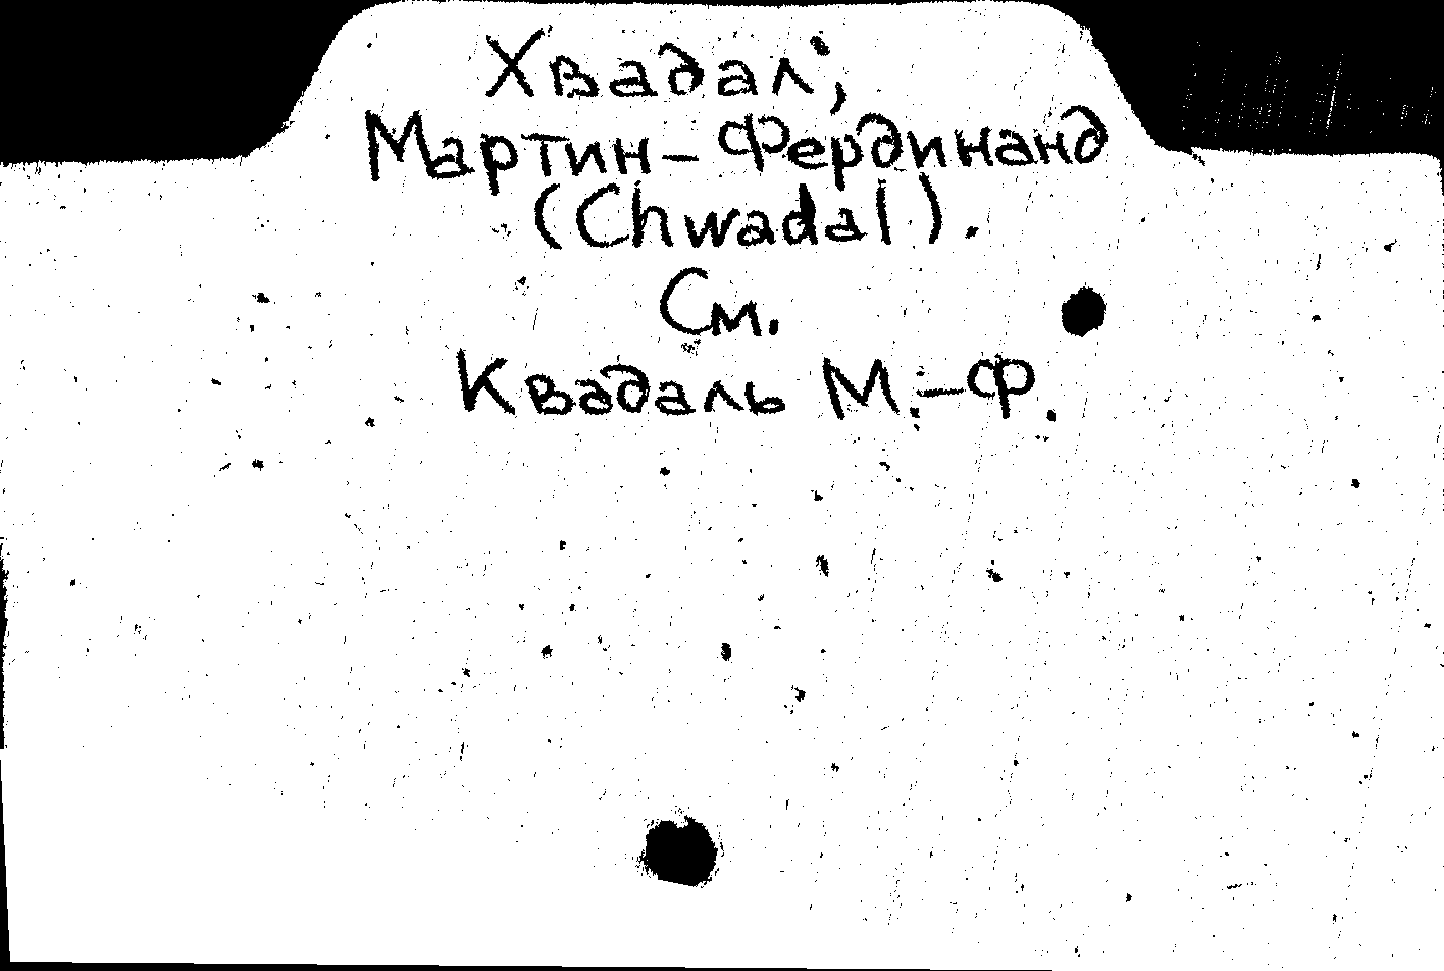 Хвадал,
Мартин-Фердинанд
(Chwadal).
См.
Квадаль М.-Ф.